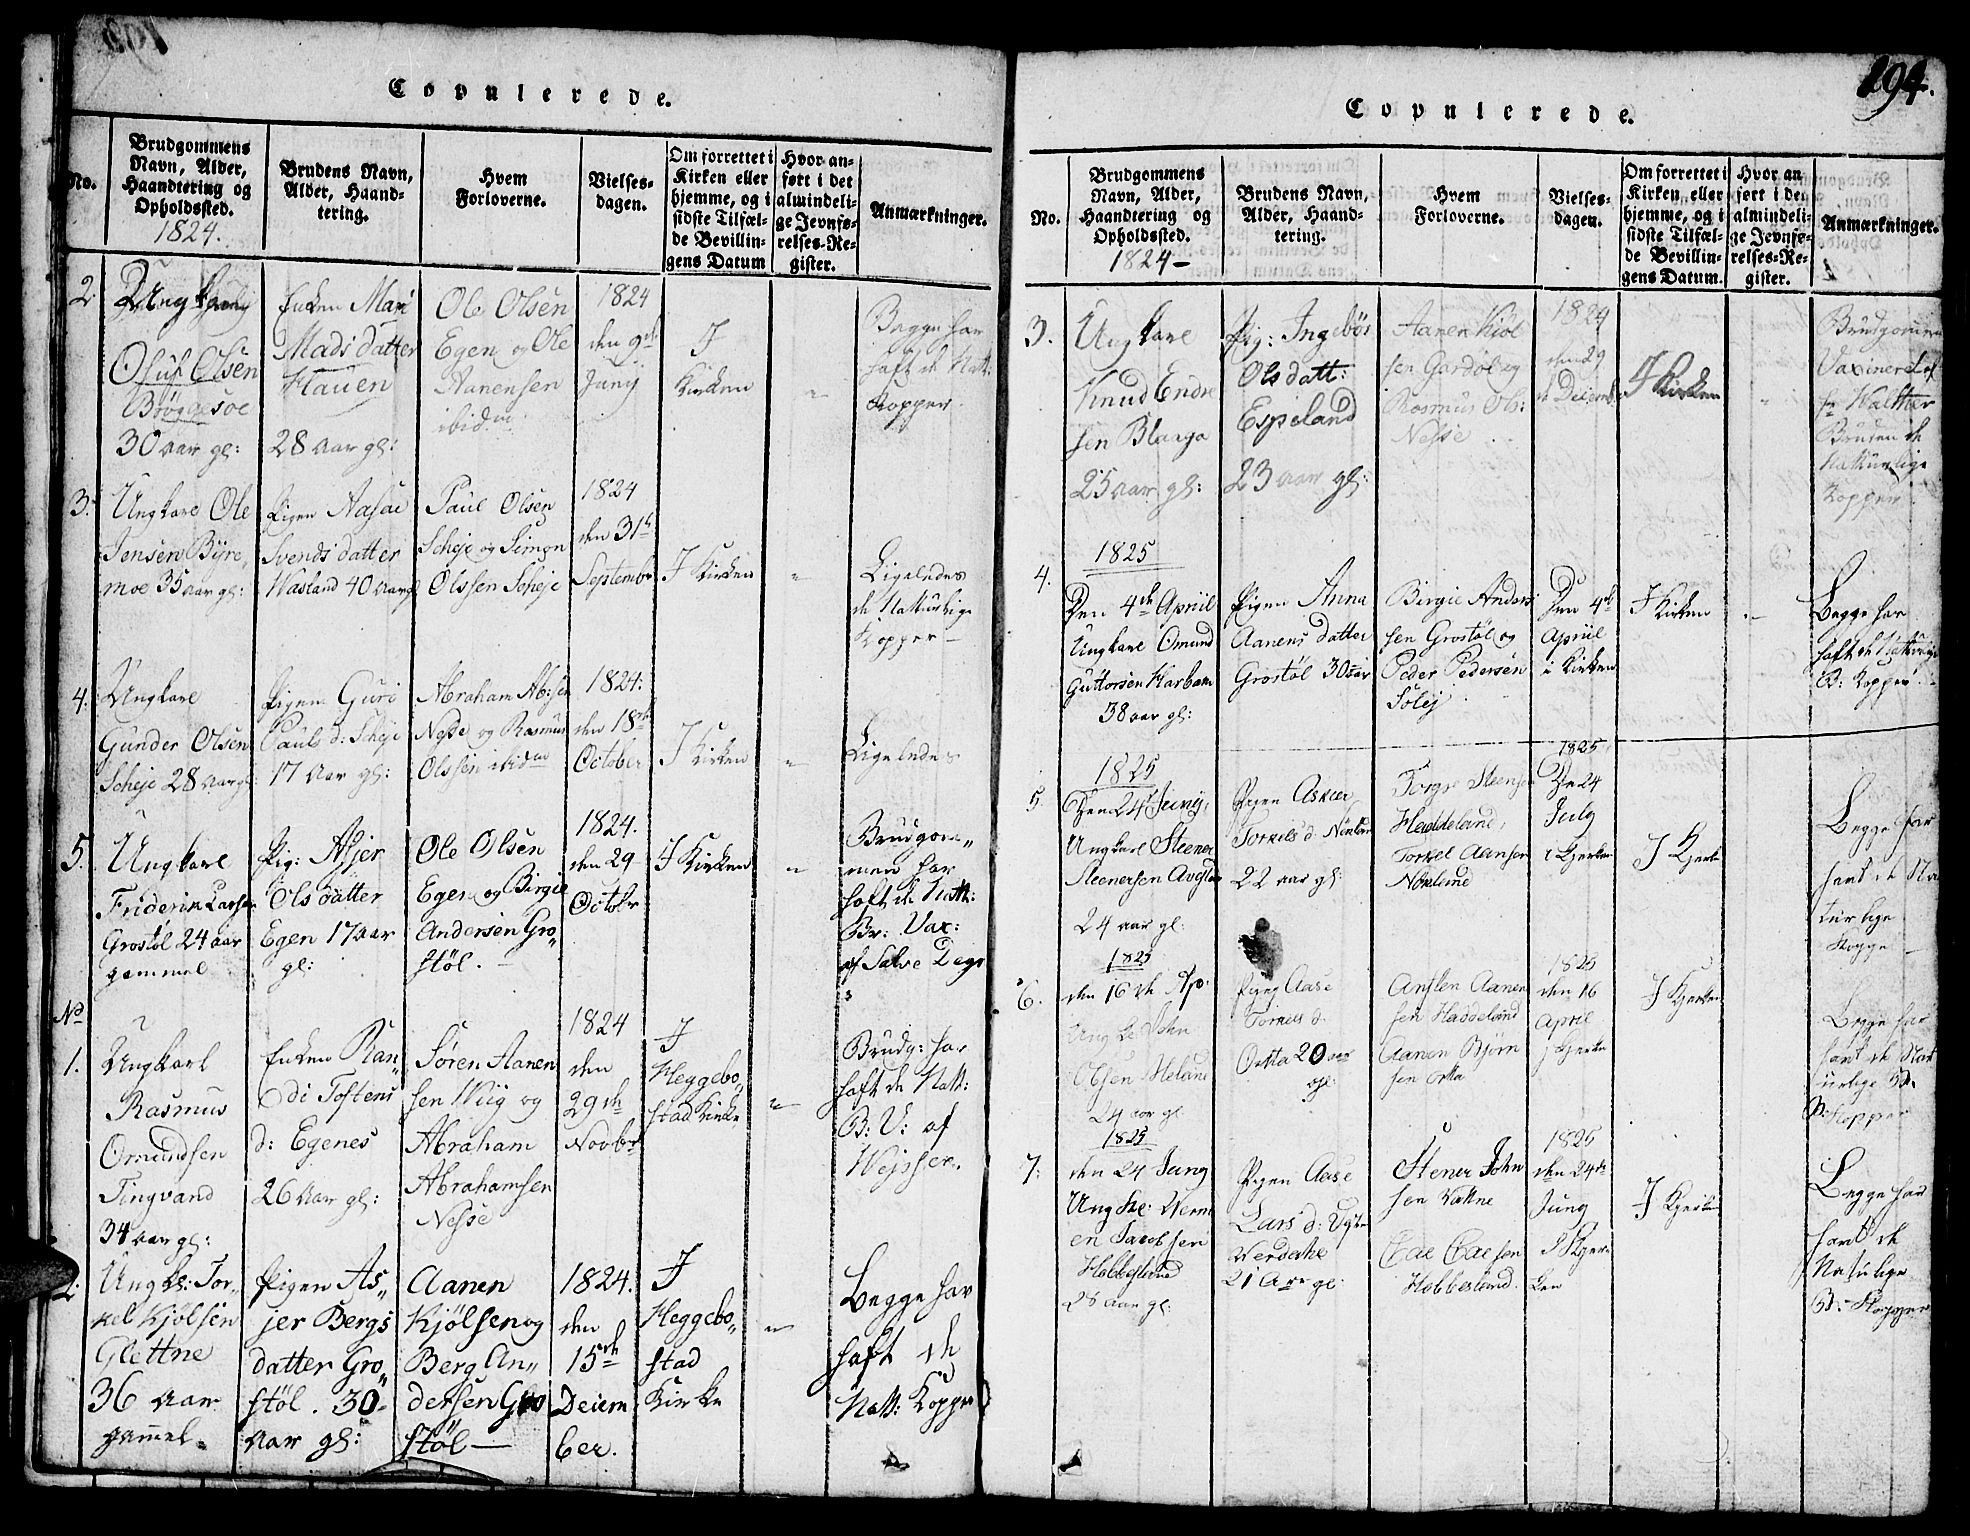 Copulerede.
No.
Brudgommens
Navn, Alder,
Haandtering og
Opholdssted.
1824.
Brudens Navn,
Alder, Haand-
tering.
Hvem
Forloverne.
Vielses-
dagen.
Om forrettet i
Kirken eller
hjemme, og i
sidste Tilfæl-
de Bevillin-
gens Datum
Hvor an-
ført i det
almindeli-
ge Jevnfø-
relses-Re-
gister.
Anmærkninger.
2.
Ungkarl
Oluf Olsen
Bröggesoe
30 aar gl:
Enken Mari
Mads datter
Hauen
28 aar gl:
Ole Olsen
Egen og Ole
Aanensen
ibidm
1824
den 9de
Junij
I
Kirken
"
Begge har
haft de Natt:
Kopper.
3.
Ungkarl Ole
Jensen Byre„
moe 35 aar gl:
Pigen Aasae
Svends datter
Wasland 40 aar g
Paul Olsen
Scheje og Simon
Olssen Scheje
1824
den 31te
Septembr
I Kirken
"
Ligeledes
de Natturlige
Kopper —
4.
Ungkarl
Gunder Olsen
Scheje 28 aar gl:
Pigen Guri
Pauls d: Scheje
17 Aar gl:
Abraham Ab:sen
Nesse og Rasmus
Olssen ibidm
1824:
den 18de
October
I Kirken
"
Ligeledes
5.
Ungkarl
Friderik Larsen
Grostöl 24 aar
gammel
Pig: Asjer
Ols datter
Egen 17 aar
gl:
Ole Olsen
Egen og Birgie
Andersen Gro„
stöl. —
1824.
den 29
Octobr
I Kirken
"
Brudgom„
men har
haft de Natt:
Br: Vax:
af Salve Dege
No
1.
Ungkarl
Rasmus
Omundsen
Tingvand
34 aar gl:
Enken Ran„
di Tostens
d: Egenes
26 Aar gl:
Søren Aanen
sen Wiig og
Abraham
Abrahamsen
Nesse
1824
den
29de
Novbr
I
Heggebo„
stad Kirke
"
Brudg: har
haft de Natt:
B: V: af
Wejsser.
2.
Ungk: Tor„
kel Kjölsen
Glettne
36 aar
gamel.
Pigen As„
jer Bergs
datter Gro„
stöl. 30
Aar gl:
Aanen
Kjölsen og
Berg An„
dersen Gro
stöl —
1824.
den
15de
Decem
ber.
I
Heggebo„
stad
Kirke
"
Begge har
haft de
Natt: Kopper
194.
Copulerede.
No.
Brudgommens
Navn, Alder,
Haandtering og
Opholdssted.
1824 —
Brudens Navn,
Alder, Haand-
tering.
Hvem
Forloverne.
Vielses-
dagen.
Om forrettet i
Kirken eller
hjemme, og i
sidste Tilfæl-
de Bevillin-
gens Datum.
Hvor an
ført i det
almindeli-
ge Jevnfø-
relses-Re-
gister.
Anmærkninger.
3.
Ungkarl
Knud Endre
sen Blanga
25 aar gl:
Pig: Ingebör
Olsdatt:
Espeland
23 aar gl:
Aanen Kiöl
sen Gardöl og
Rasmus Ols:
Nesse
1824
den 29
Decemb
I Kirken
Brudgommen
Vaxineret af
Hr Walther
Bruden de
Naturlige
Kopper.
4.
1825
Den 4de Apriil
Ungkarl Omund
Guttorsen Harbam
38 aar gl:
Pigen Anna
Aanens datter
Grostöl 30 aar
Birgie Anders
sen Grostöl og
Peder Pedersen
Solej
Den 4de
Apriil
i Kirken
I Kirken
Begge har
haft de Naturlige
B: Kopper.
5
1825
Den 24 Junij,
Ungkarl Steener
Steenersen
24 aar gl:
Pigen Asker
Torkils d:
22 aar gl:
Torge Steensen
Haddeland,
Torkel Aansen
1825
Den 24
July
i Kjerken
I Kjerken
Begge har
havt de Na
turlige
Koppe
6.
1825
den 16 de Ap:
Ungke John
Olsen Heland
24 aar gl
Pigej Aase
Torkels d:
Ostta 20 aar
gl:
Anslen Aanen
sen Haddeland
Aanen Bjorn
sen otta
1825
den 16
April
j Kjerke
I Kjerken
Begge har
havt de Nat
urlige B:
Kopper
7:
1825
den 24 Juny
Ungke:
en Jacobsen
28 aar gl:
Pigen Aase
Lars d:
21 Aar gl:
Stener John
sen
1825
den 24de
Juny
I Kjer-
ken
I Kjerken
Begge har
havt de
Naturlige
B: Kopper